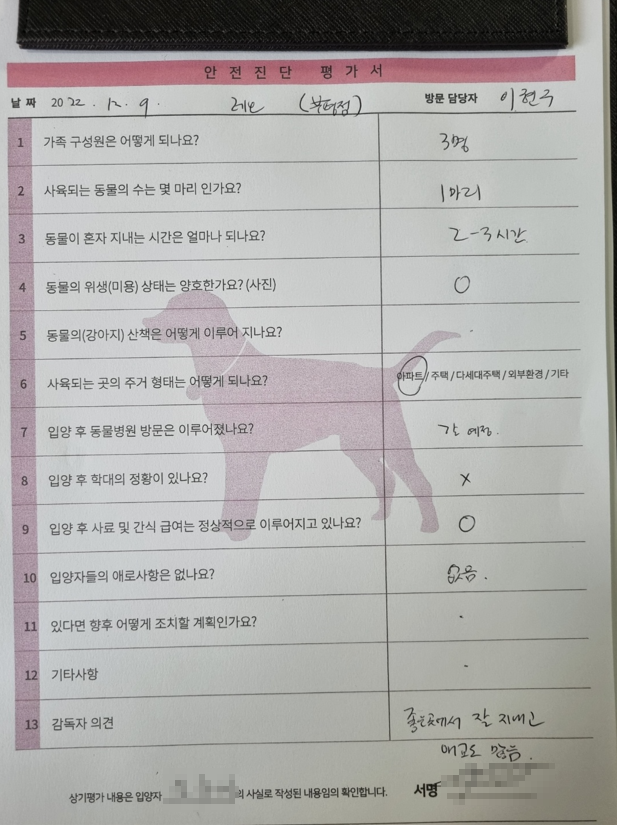 안전진단 평가서
날 짜 2022. 12. 9. 레오 (부평점) 방문 담당자 이현주
1 가족 구성원은 어떻게 되나요? 3명
2 사육되는 동물의 수는 몇 마리 인가요? 1마리
3 동물이 혼자 지내는 시간은 얼마나 되나요? 2-3시간
4 동물의 위생(미용) 상태는 양호한가요? (사진) O
5 동물의(강아지) 산책은 어떻게 이루어 지나요? ·
6 사육되는 곳의 주거 형태는 어떻게 되나요? 아파트 / 주택 / 다세대주택 / 외부환경 / 기타
7 입양 후 동물병원 방문은 이루어졌나요? 갈 예정.
8 입양 후 학대의 정황이 있나요? X
9 입양 후 사료 및 간식 급여는 정상적으로 이루어지고 있나요? O
10 입양자들의 애로사항은 없나요? 없음.
11 있다면 향후 어떻게 조치할 계획인가요? ·
12 기타사항 ·
13 감독자 의견 좋은곳에서 잘 지내고
애교도 많음.
상기평가 내용은 입양자 의 사실로 작성된 내용임의 확인합니다. 서명